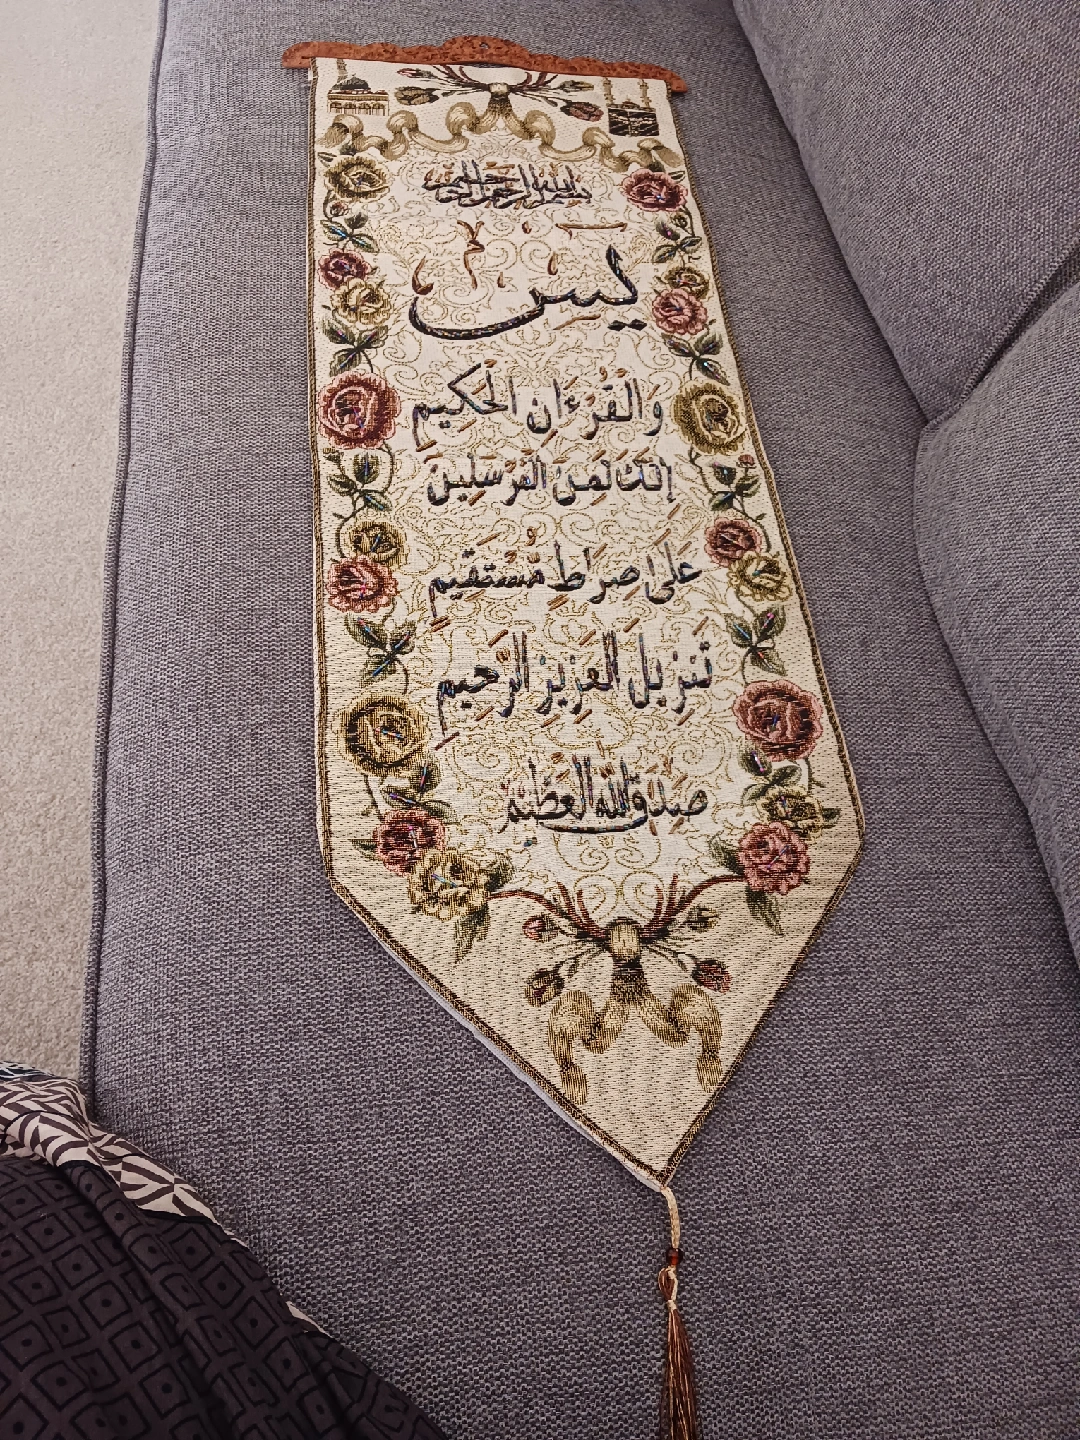 بسم الله الرحمن الرحيم
يسٓ
وَالْقُرْءَانِ الْحَكِيمِ
إِنَّكَ لَمِنَ الْمُرْسَلِينَ
عَلَىٰ صِرَاطٍ مُّسْتَقِيمٍ
تَنزِيلَ الْعَزِيزِ الرَّحِيمِ
صَدَقَ اللَّهُ الْعَظِيمُ